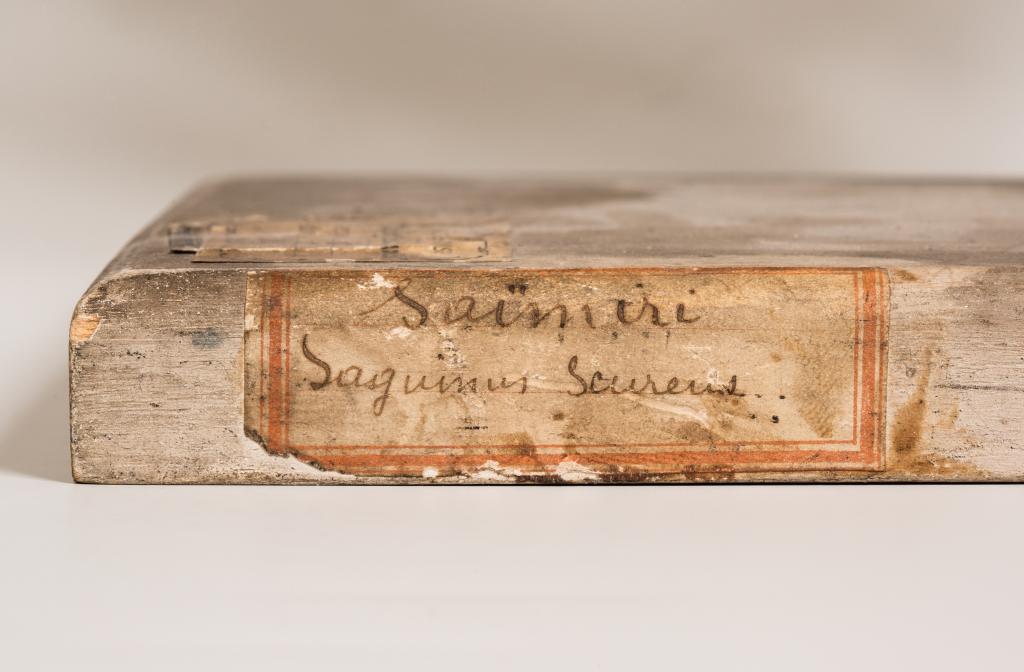 Saïmiri
Saguinus Sciureus.